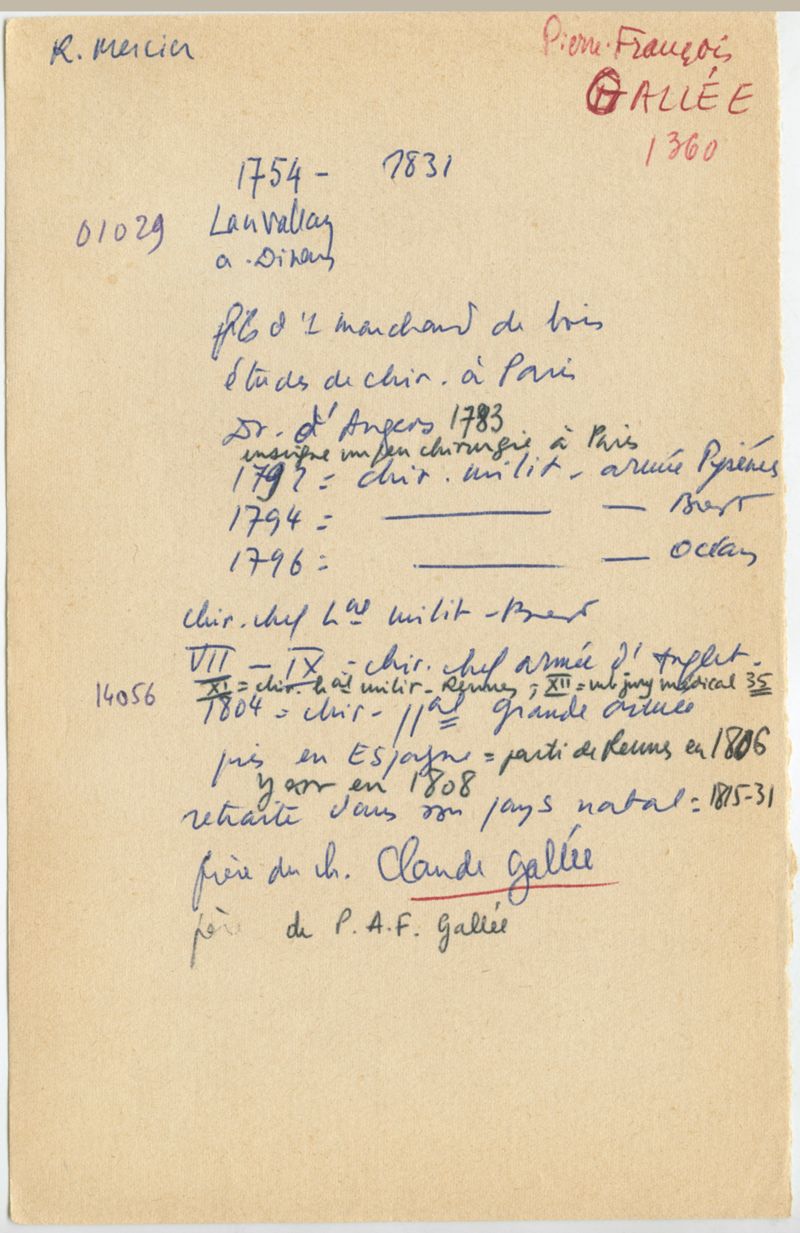 R. Mercier
Pierre-François
GALLÉE
1360
1754 - 1831
01029 Lanvallay
a Dinan
fils d'1 marchand de bois
études de chir. à Paris
Dr. d'Angers 1783
enseigne un peu chirurgie à Paris
1792 = chir. milit - armée Pyrénées
1794 = ——— — Brest
1796 = ——— — Océan
chir. chef hal milit - Brest
VII - IX - chir. chef armée d'Anglet.
XI = chir. hal milit - Rennes ; XII = mb jury médical 35
14056
1804 = chir - pal Grande armée
puis en Espagne = parti de Rennes en 1806
y en 1808
retraite dans son pays natal = 1815-31
frère du ch. Claude Gallée
père de P. A. F. Gallée